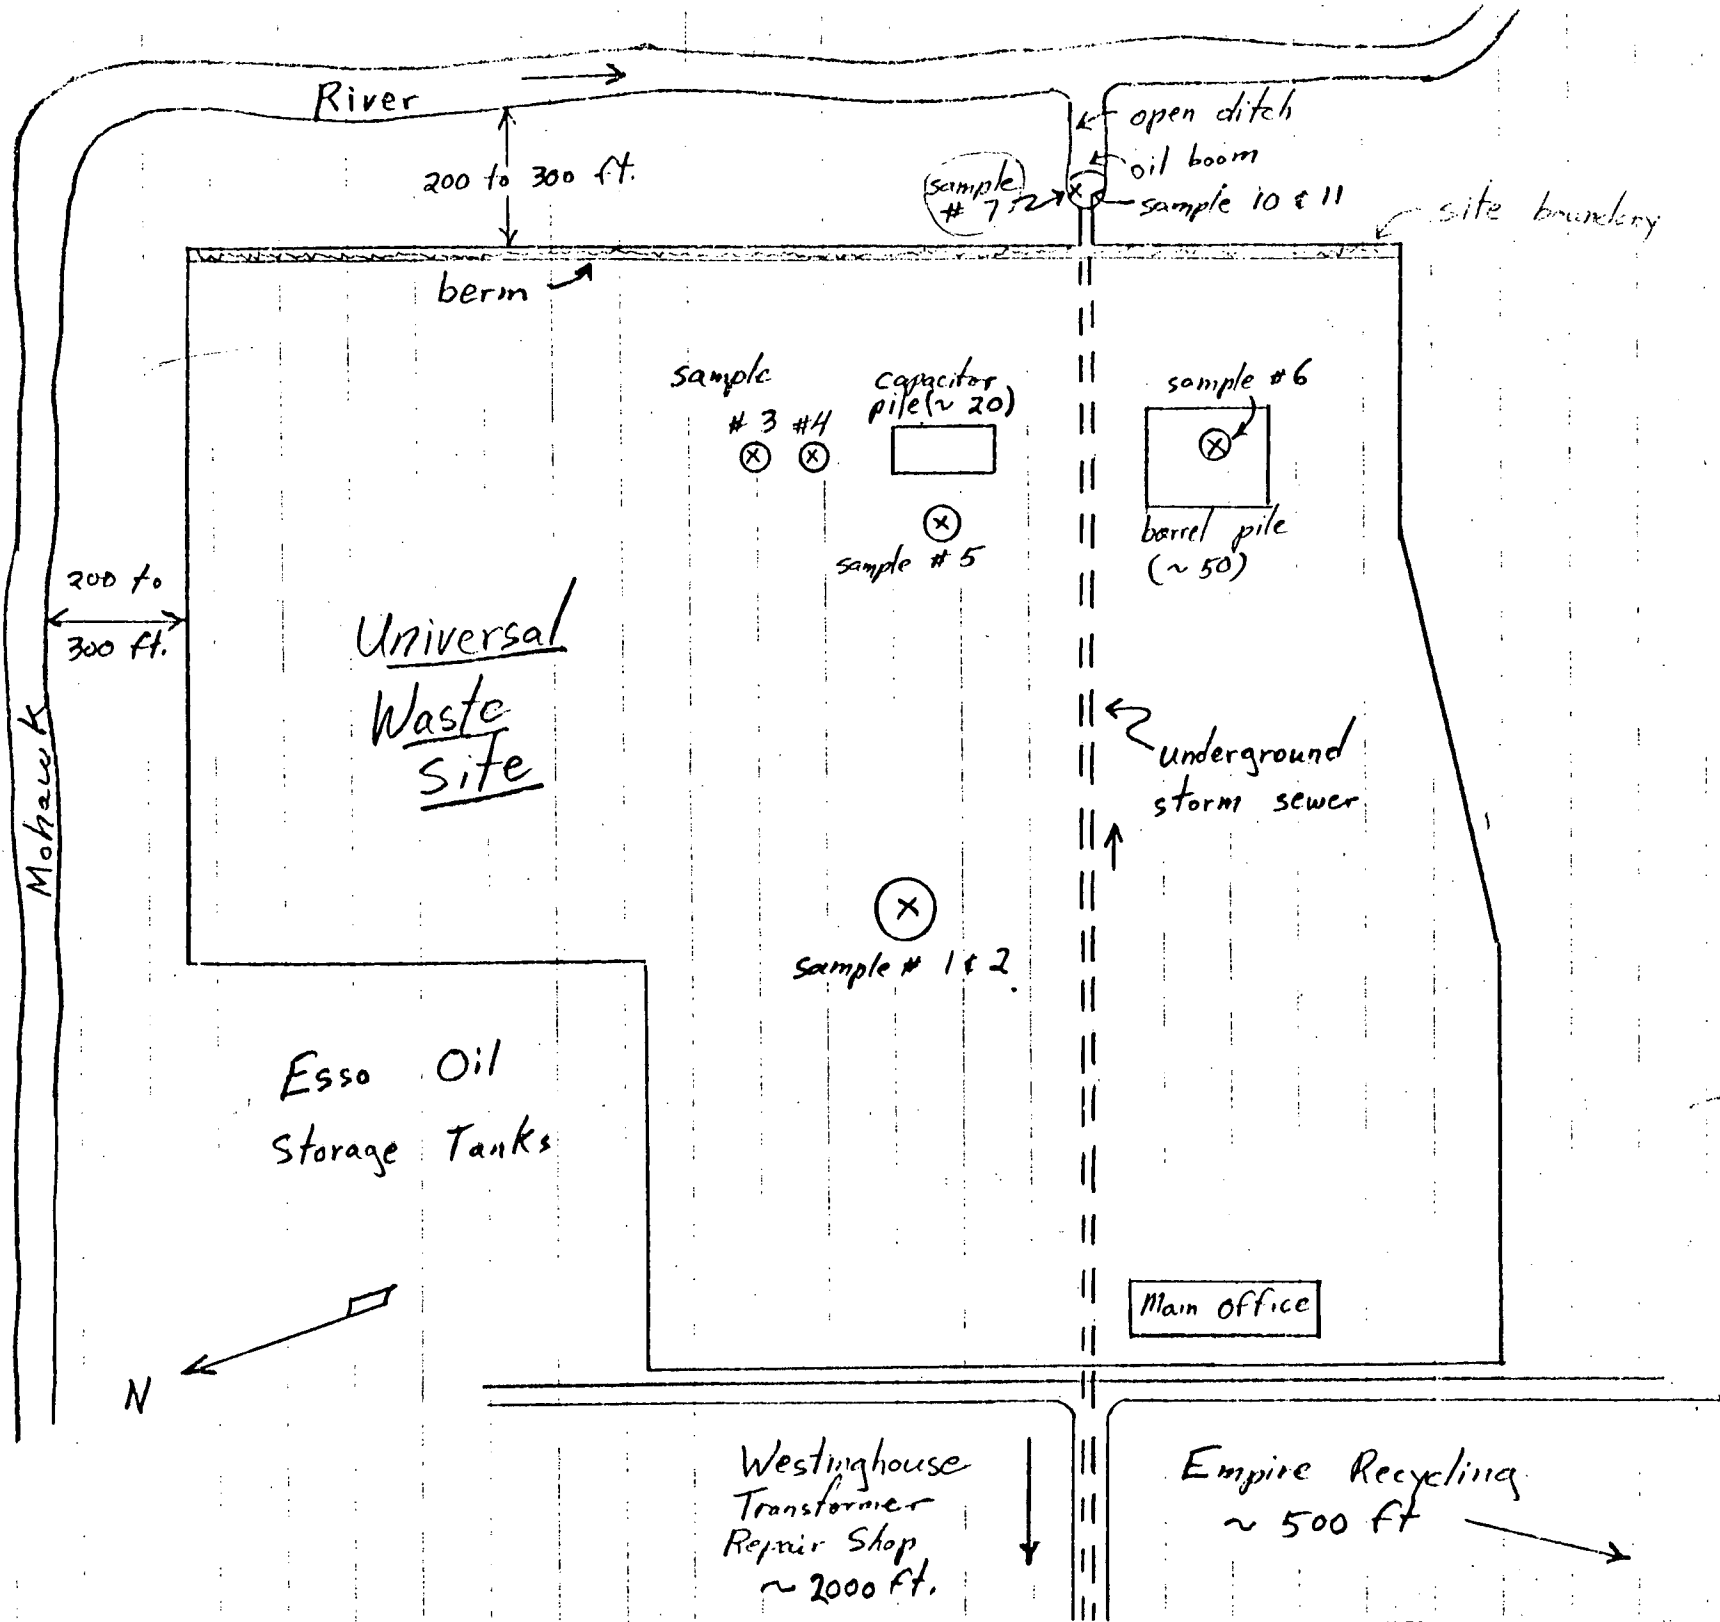 River
open ditch
oil boom
200 to 300 ft.
sample
# 7
sample 10 & 11
site boundary
berm
sample
# 3 #4
capacitor
pile (~ 20)
sample #6
sample # 5
barrel pile
(~ 50)
200 to
300 ft.
Universal
Waste
Site
Mohawk
underground
storm sewer
sample # 1 & 2
Esso Oil
Storage Tanks
Main office
N
Westinghouse
Transformer
Repair Shop
~ 2000 ft.
Empire Recycling
~ 500 ft